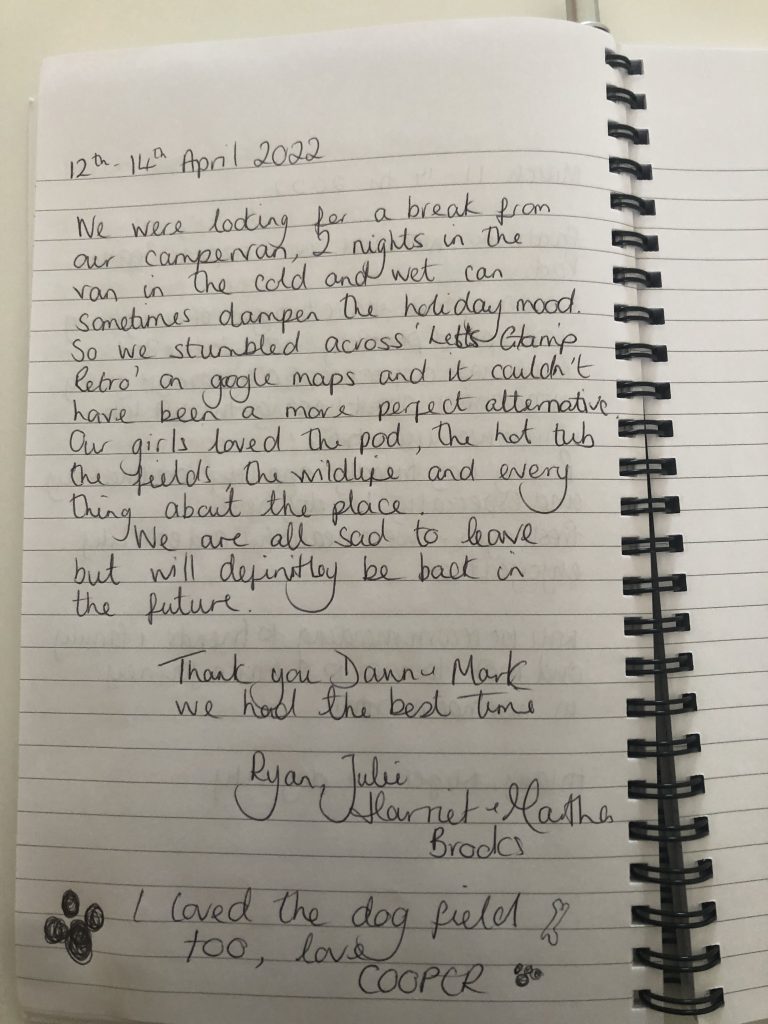 12th - 14th April 2022
We were looking for a break from
our campervan, 2 nights in the
van in the cold and wet can
sometimes dampen the holiday mood.
So we stumbled across 'Letts Glamp
Retro' on google maps and it couldn't
have been a more perfect alternative.
Our girls loved the pod, the hot tub
the fields, the wildlife and every
thing about the place.
We are all sad to leave
but will definitley be back in
the future.
Thank you Dann & Mark
we had the best time
Ryan, Julie
Harriet & Martha
Brooks
I loved the dog field
too, love
COOPER